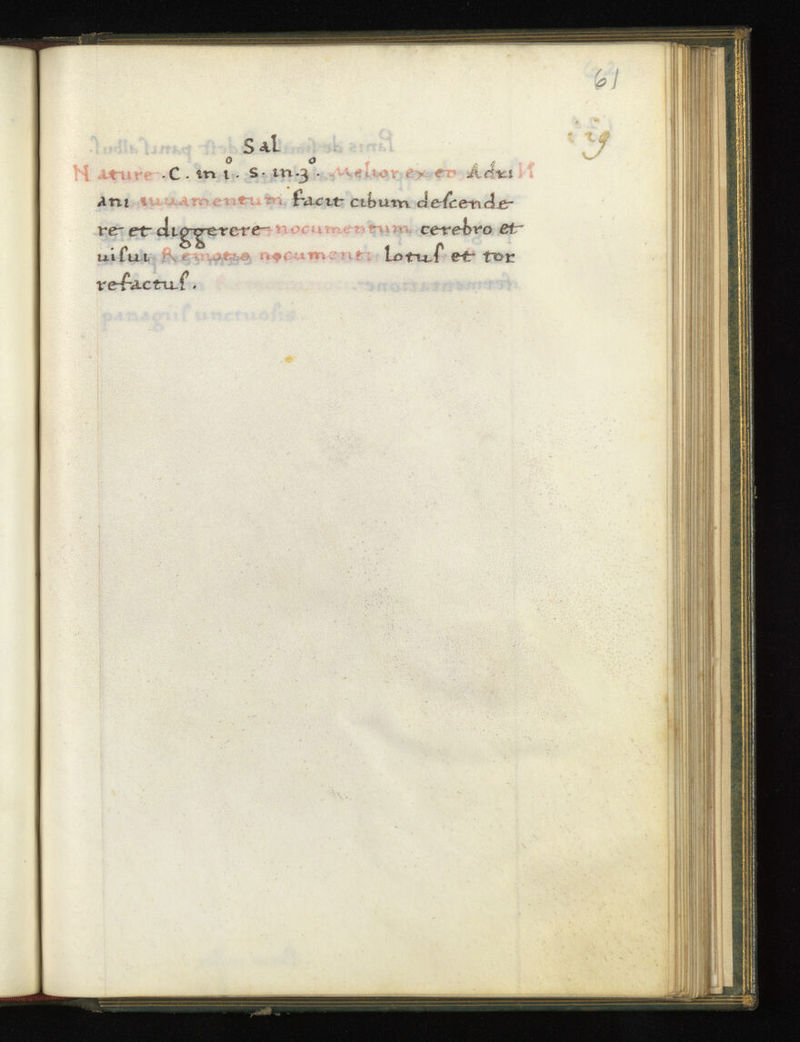 61
Sal
Nature .C. in i. S. in .3. Melior ex eo Adri
ani iuuamentum facit cibum descende
re et diggerere nocumentum cerebro et
uisui Remotio nocumenti lotus et tor
refactus.